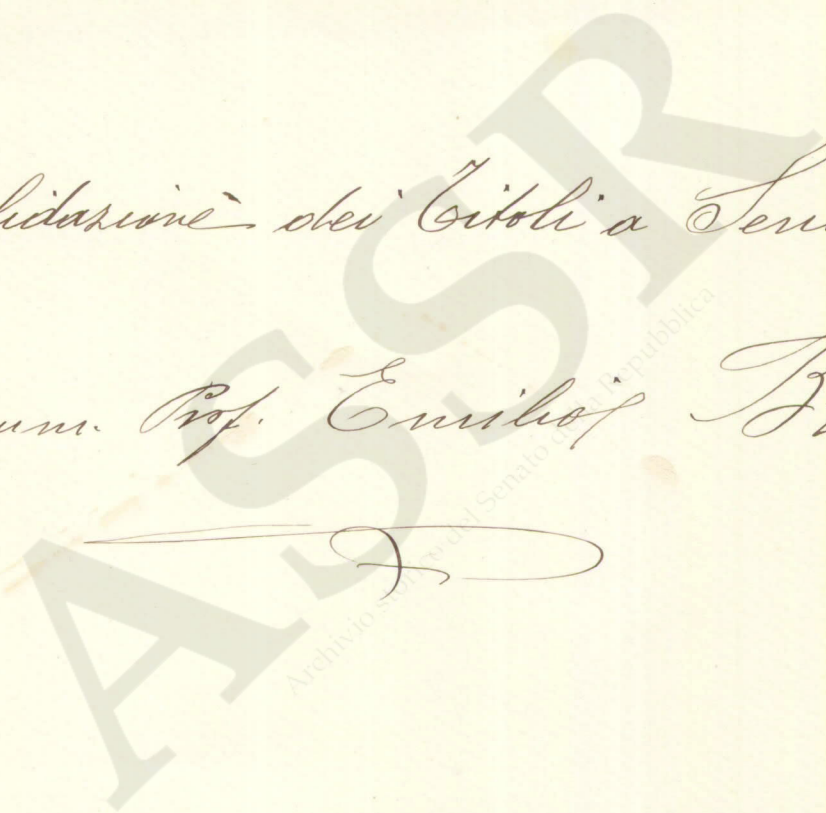 lidazione dei Titoli a Sen
um. Prof. Emilio B
ASSR
Archivio storico del Senato della Repubblica